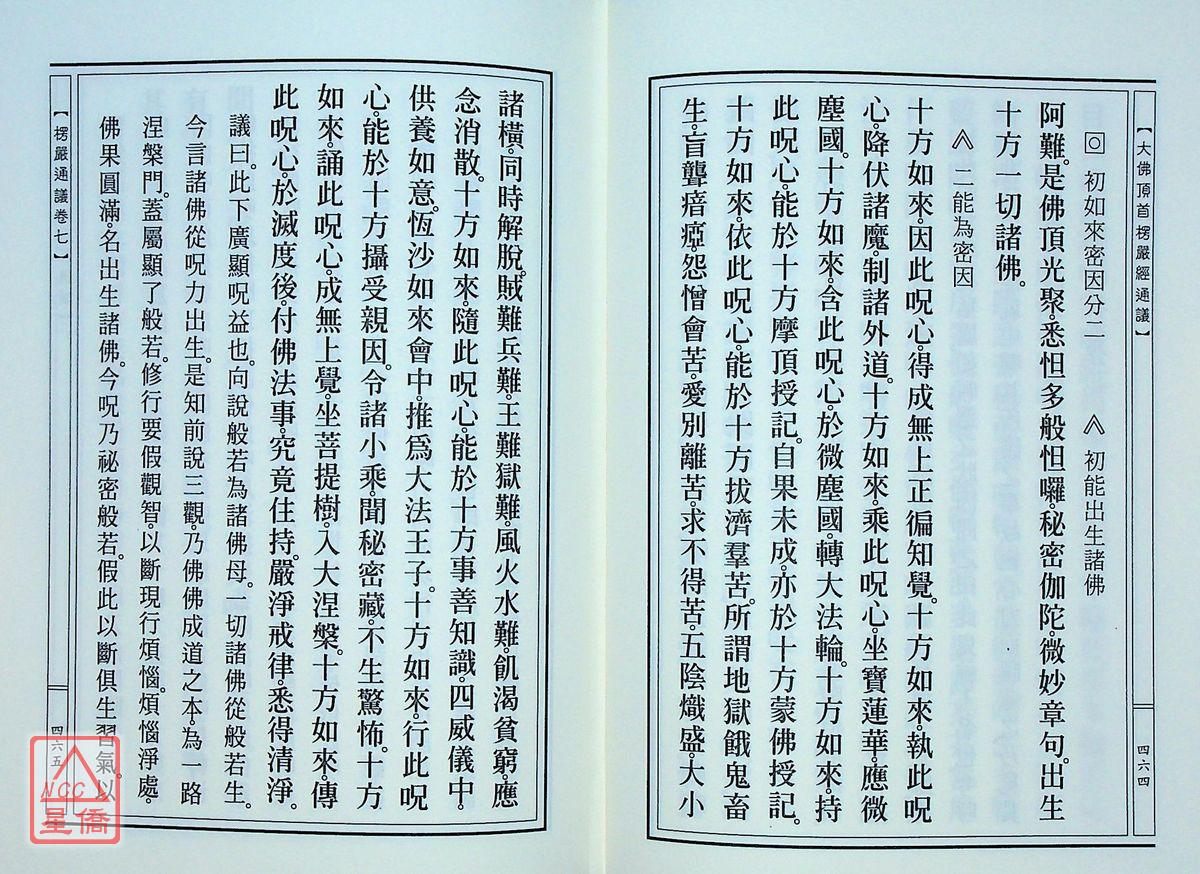 【大佛頂首楞嚴經通議】
四六四
回 初如來密因分二 ︽ 初能出生諸佛
阿難。是佛頂光聚。悉怛多般怛囉。秘密伽陀。微妙章句。出生
十方一切諸佛。
︽ 二能為密因
十方如來。因此呪心。得成無上正徧知覺。十方如來。執此呪
心。降伏諸魔。制諸外道。十方如來。乘此呪心。坐寶蓮華。應微
塵國。十方如來。含此呪心。於微塵國。轉大法輪。十方如來。持
此呪心。能於十方摩頂授記。自果未成。亦於十方蒙佛授記。
十方如來。依此呪心。能於十方拔濟羣苦。所謂地獄餓鬼畜
生。盲聾瘖瘂。怨憎會苦。愛別離苦。求不得苦。五陰熾盛。大小
諸橫。同時解脫。賊難兵難。王難獄難。風火水難。飢渴貧窮。應
念消散。十方如來。隨此呪心。能於十方事善知識。四威儀中。
供養如意。恆沙如來會中。推爲大法王子。十方如來。行此呪
心。能於十方攝受親因。令諸小乘。聞秘密藏。不生驚怖。十方
如來。誦此呪心。成無上覺。坐菩提樹。入大涅槃。十方如來。傳
此呪心。於滅度後。付佛法事。究竟住持。嚴淨戒律。悉得清淨。
議曰。此下廣顯呪益也。向說般若為諸佛母。一切諸佛從般若生。
今言諸佛從呪力出生。是知前說三觀。乃佛佛成道之本。為一路
涅槃門。蓋屬顯了般若。修行要假觀智。以斷現行煩惱。煩惱淨處。
佛果圓滿。名出生諸佛。今呪乃祕密般若。假此以斷俱生習氣。以
【楞嚴通議卷七】
四六五
NCC
星僑